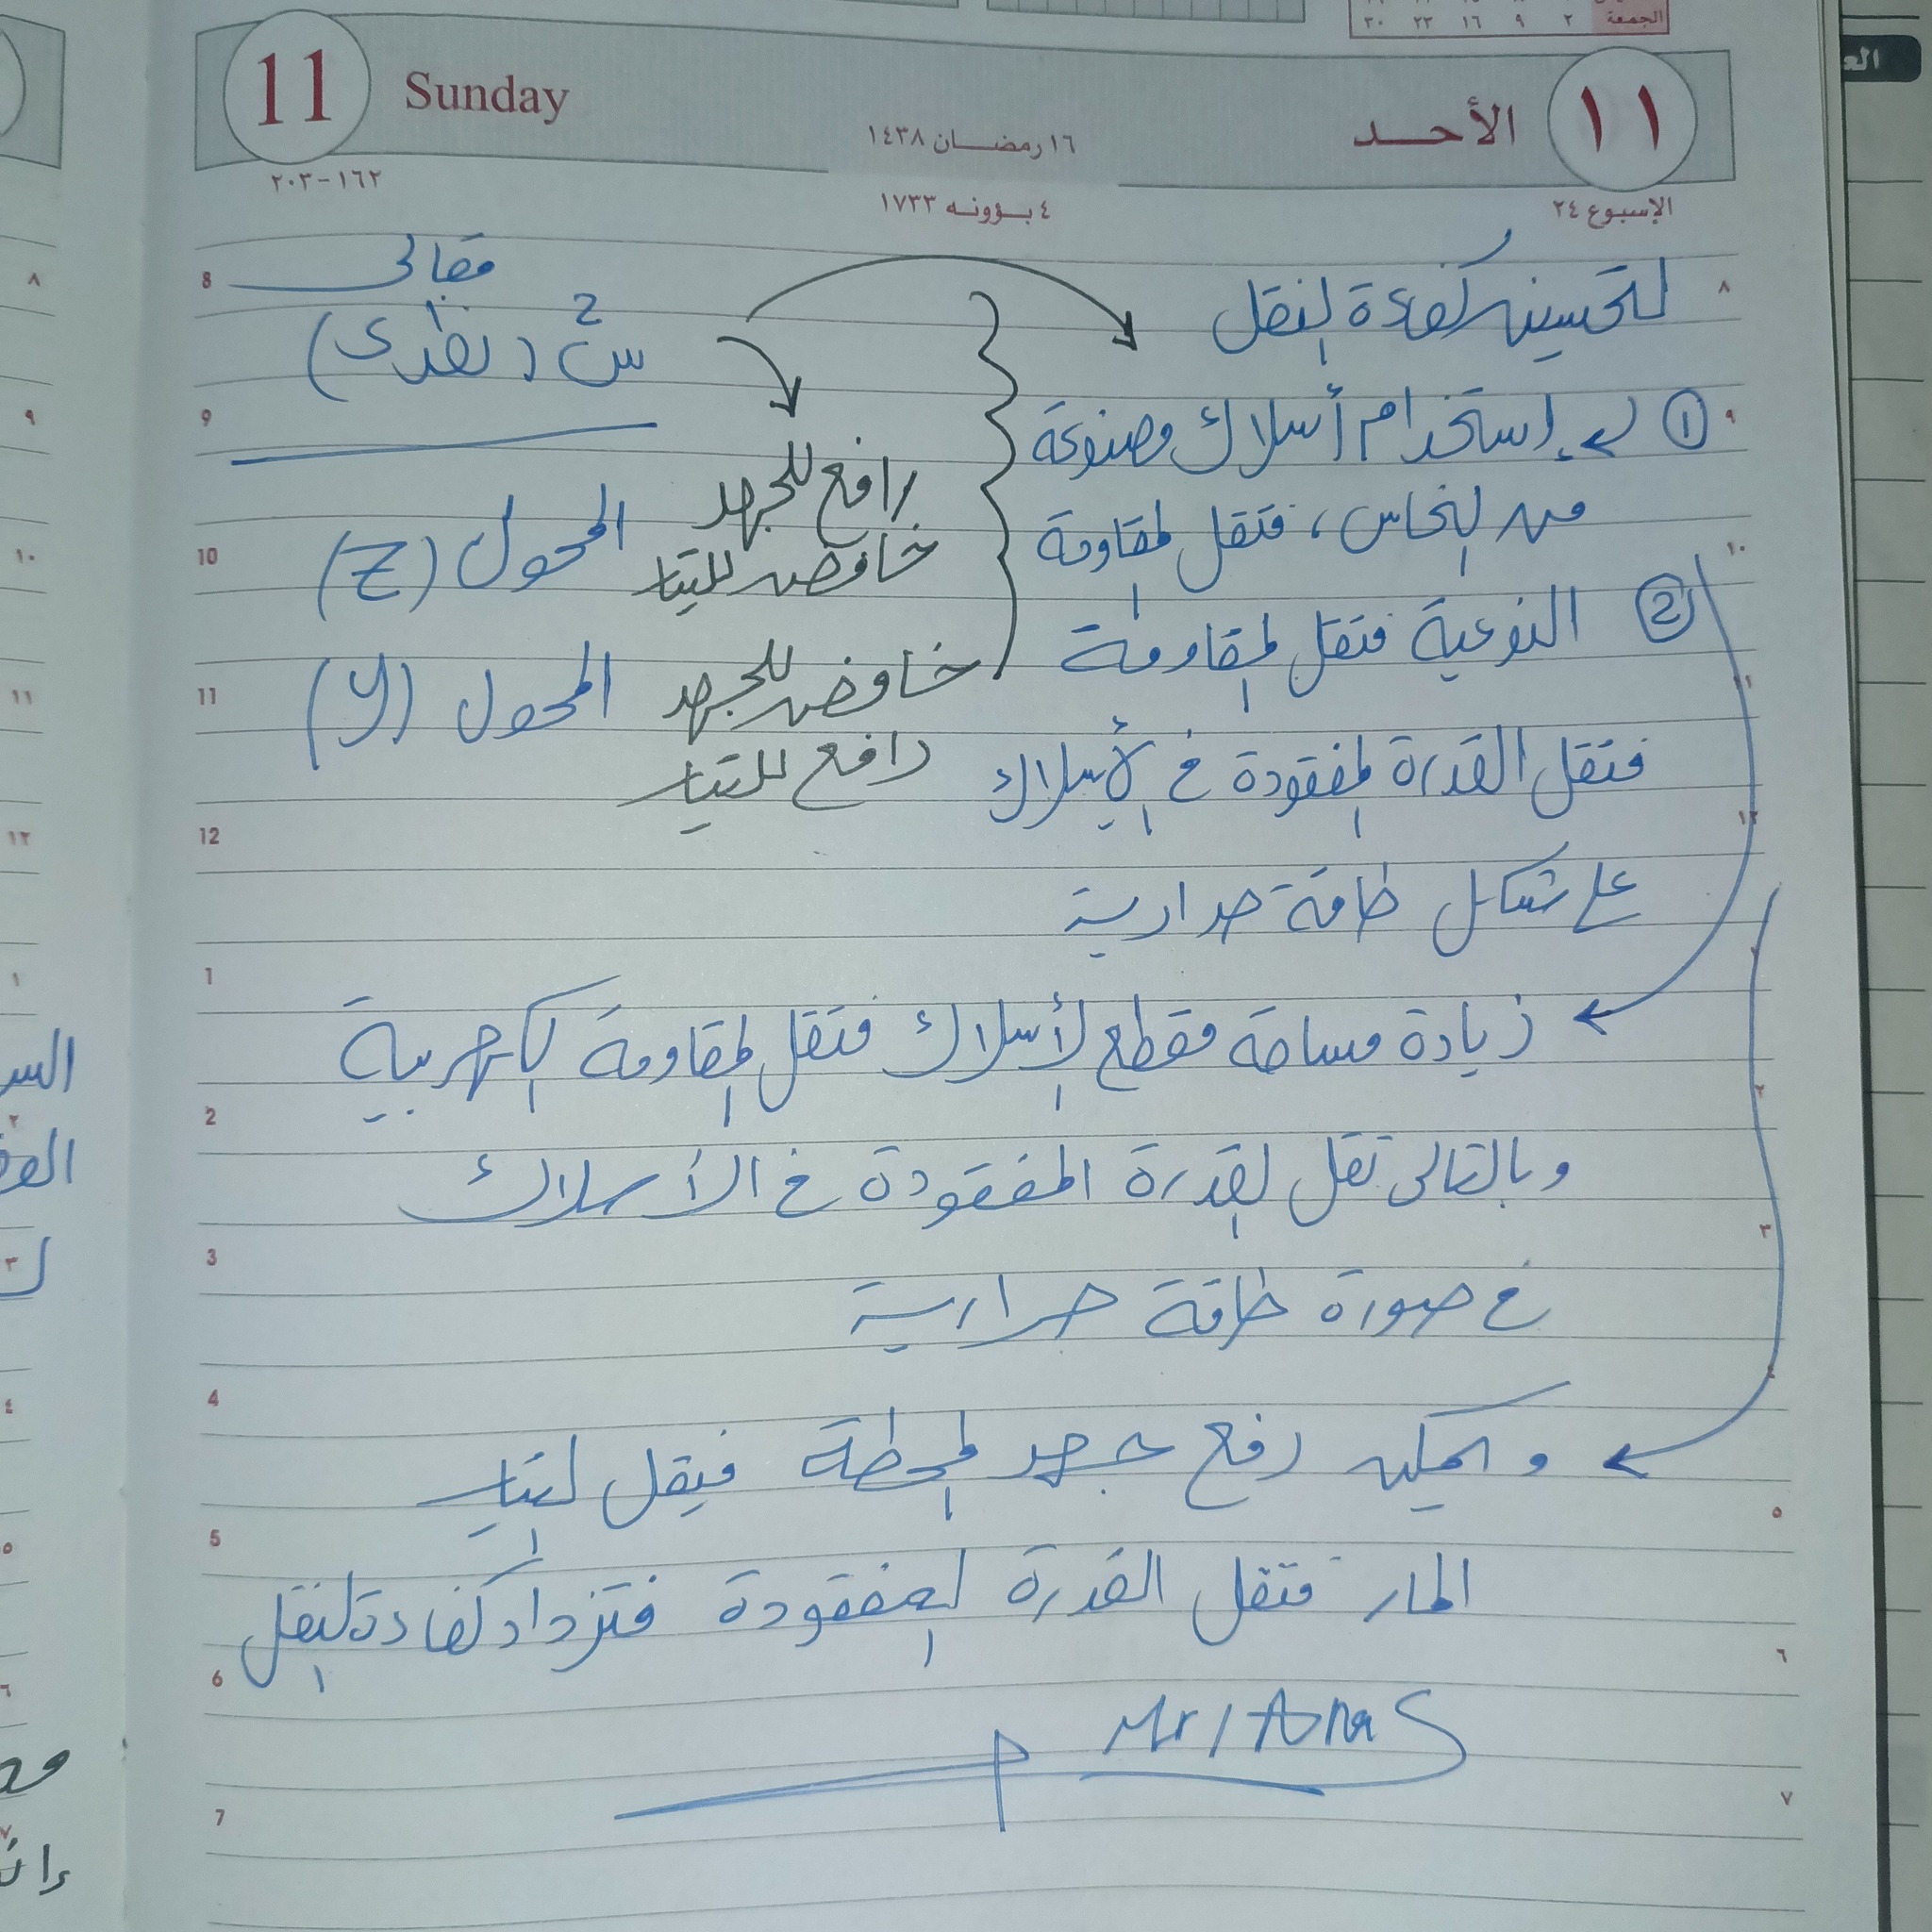 الجمعة ٢ ٩ ١٦ ٢٣ ٣٠
11 Sunday
١٦ رمضـــان ١٤٣٨
الأحــد ١١
٢٠٣-١٦٢
٤ بـؤونـه ١٧٣٣
الإسبوع ٢٤
مقالى
س2 (نقدى)
لتحسين كفاءة النقل
① إستخدام أسلاك مصنوعة
من النحاس، فتقل المقاومة
② النوعية فتقل المقاومة
فتقل القدرة المفقودة في الأسلاك
على شكل طاقة حرارية
المحول (Z) رافع للجهد
خافض للتيار
المحول (y) خافض للجهد
رافع للتيار
زيادة مساحة مقطع الأسلاك فتقل المقاومة الكهربية
وبالتالى تقل القدرة المفقودة في الأسلاك
في صورة طاقة حرارية
ويمكن رفع جهد المحطة فيقل التيار
المار فتقل القدرة المفقودة فتزداد كفاءة النقل
Mr/Anas